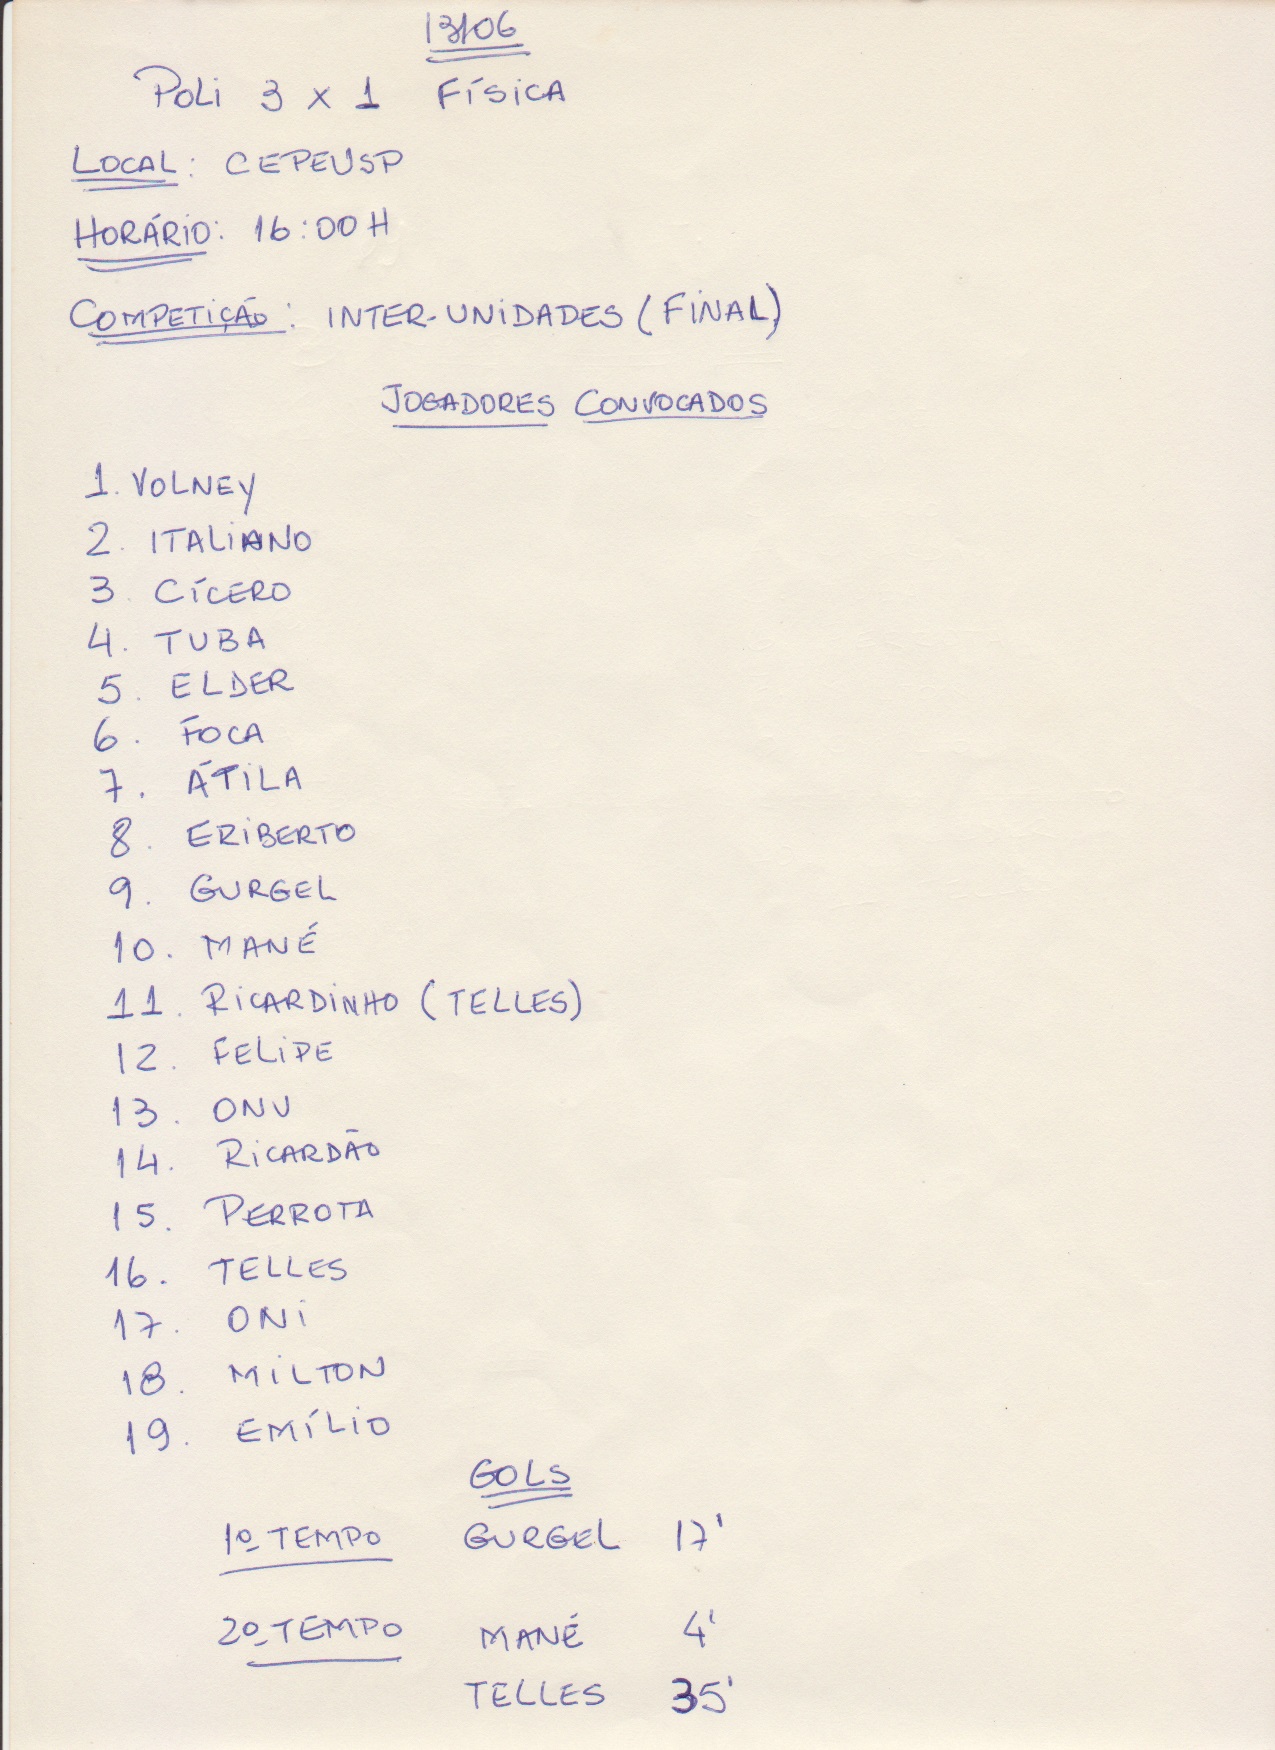 13/06
POLI 3 X 1 FÍSICA
LOCAL: CEPEUSP
HORÁRIO: 16:00H
COMPETIÇÃO: INTER-UNIDADES (FINAL)
JOGADORES CONVOCADOS
1. VOLNEY
2. ITALIANO
3. CÍCERO
4. TUBA
5. ELDER
6. FOCA
7. ÁTILA
8. ERIBERTO
9. GURGEL
10. MANÉ
11. RICARDINHO (TELLES)
12. FELIPE
13. ONU
14. RICARDÃO
15. PERROTA
16. TELLES
17. ONI
18. MILTON
19. EMÍLIO
GOLS
1º TEMPO GURGEL 17'
2º TEMPO MANÉ 4'
TELLES 35'